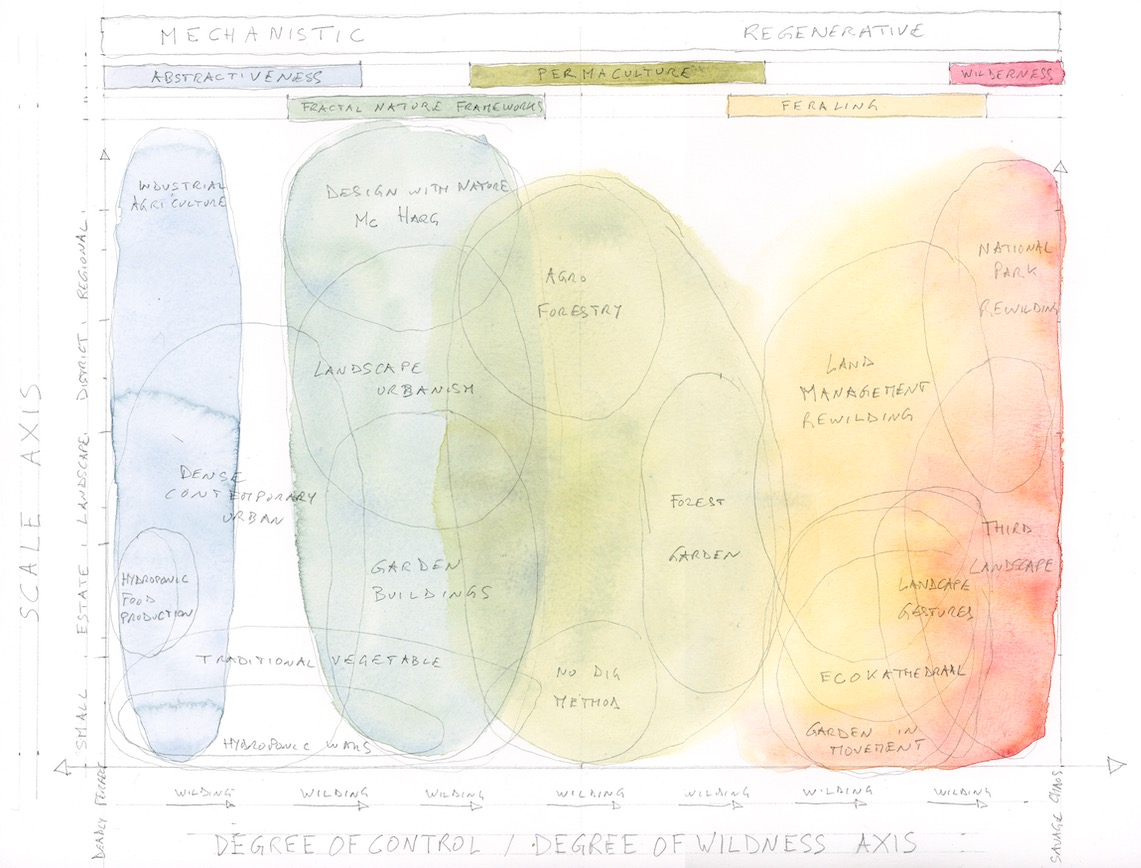 MECHANISTIC
REGENERATIVE
ABSTRACTIVENESS
PERMACULTURE
WILDERNESS
FRACTAL NATURE FRAMEWORKS
FERALING
INDUSTRIAL
AGRICULTURE
DESIGN WITH NATURE
MC HARG
AGRO
FORESTRY
NATIONAL
PARK
REWILDING
LANDSCAPE
URBANISM
LAND
MANAGEMENT
REWILDING
DENSE
CONTEMPORARY
URBAN
FOREST
GARDEN
THIRD
LANDSCAPE
GARDEN
BUILDINGS
HYDROPONIC
FOOD
PRODUCTION
LANDCAPE
GESTURES
TRADITIONAL VEGETABLE
NO DIG
METHOD
ECOKATHEDRAAL
GARDEN IN
MOVEMENT
HYDROPONIC WALLS
SCALE AXIS
SMALL. ESTATE LANDSCAPE. DISTRICT. REGIONAL.
DEADLY
SAVAGE CHAOS
WILDING
WILDING
WILDING
WILDING
WILDING
WILDING
WILDING
DEGREE OF CONTROL / DEGREE OF WILDNESS AXIS